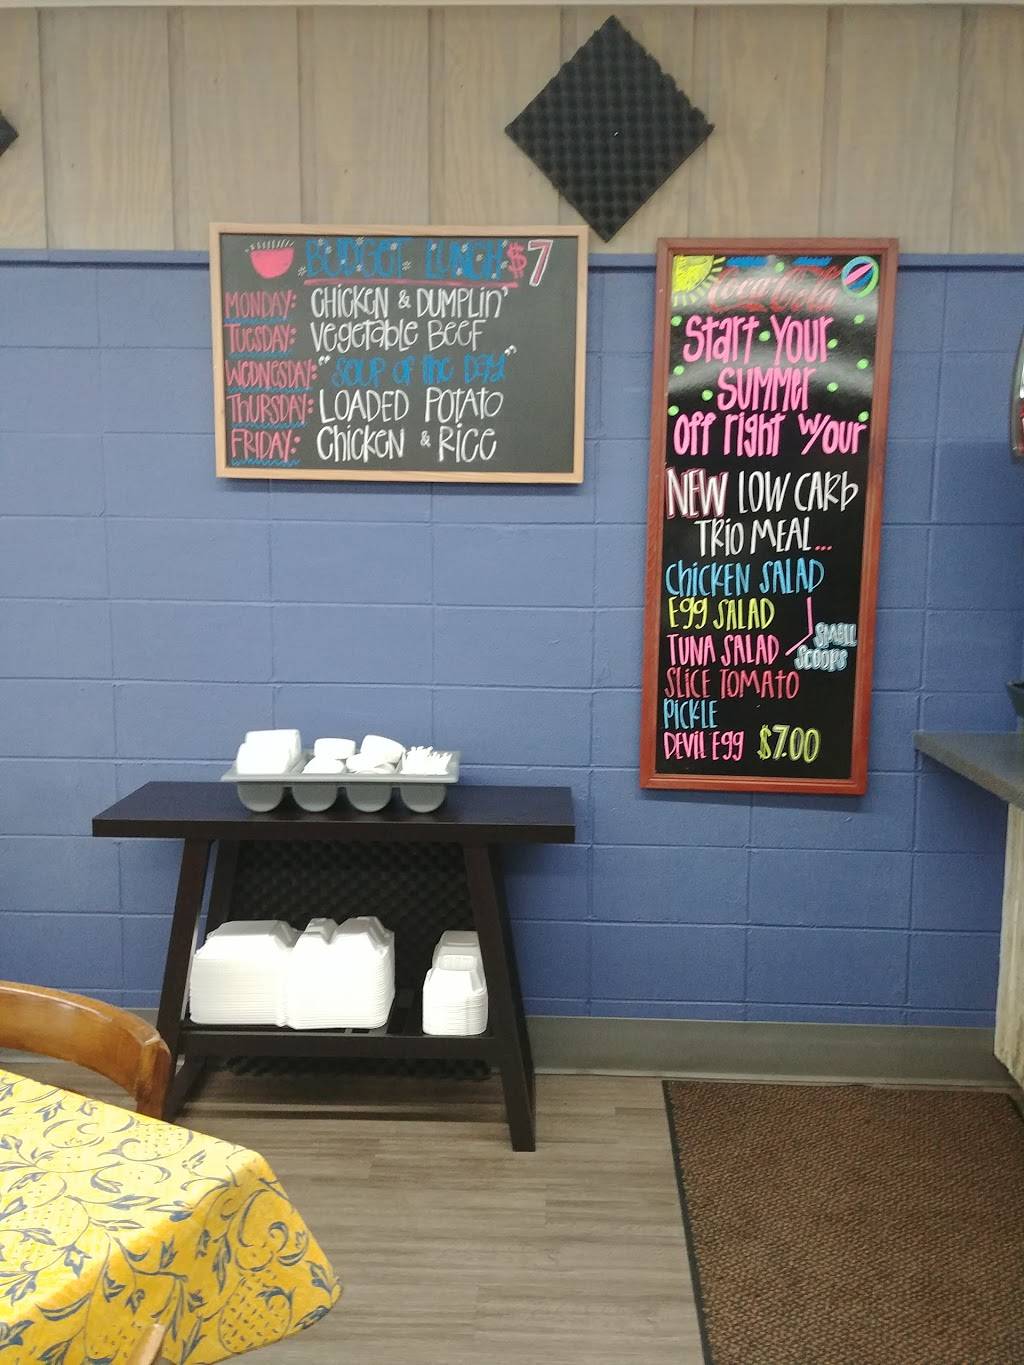 BUDGET LUNCH $7
MONDAY: CHICKEN & DUMPLIN'
TUESDAY: VEGETABLE BEEF
WEDNESDAY: "SOUP OF THE DAY"
THURSDAY: LOADED POTATO
FRIDAY: CHICKEN & RICE
Coca-Cola
Start Your
SUMMER
Off right w/our
NEW LOW CARb
TRIO MEAL...
CHICKEN SALAD
Egg SALAD
TUNA SALAD
SMALL
SCOOPS
SLICE TOMATO
PICKLE
DEVIL Egg $7.00